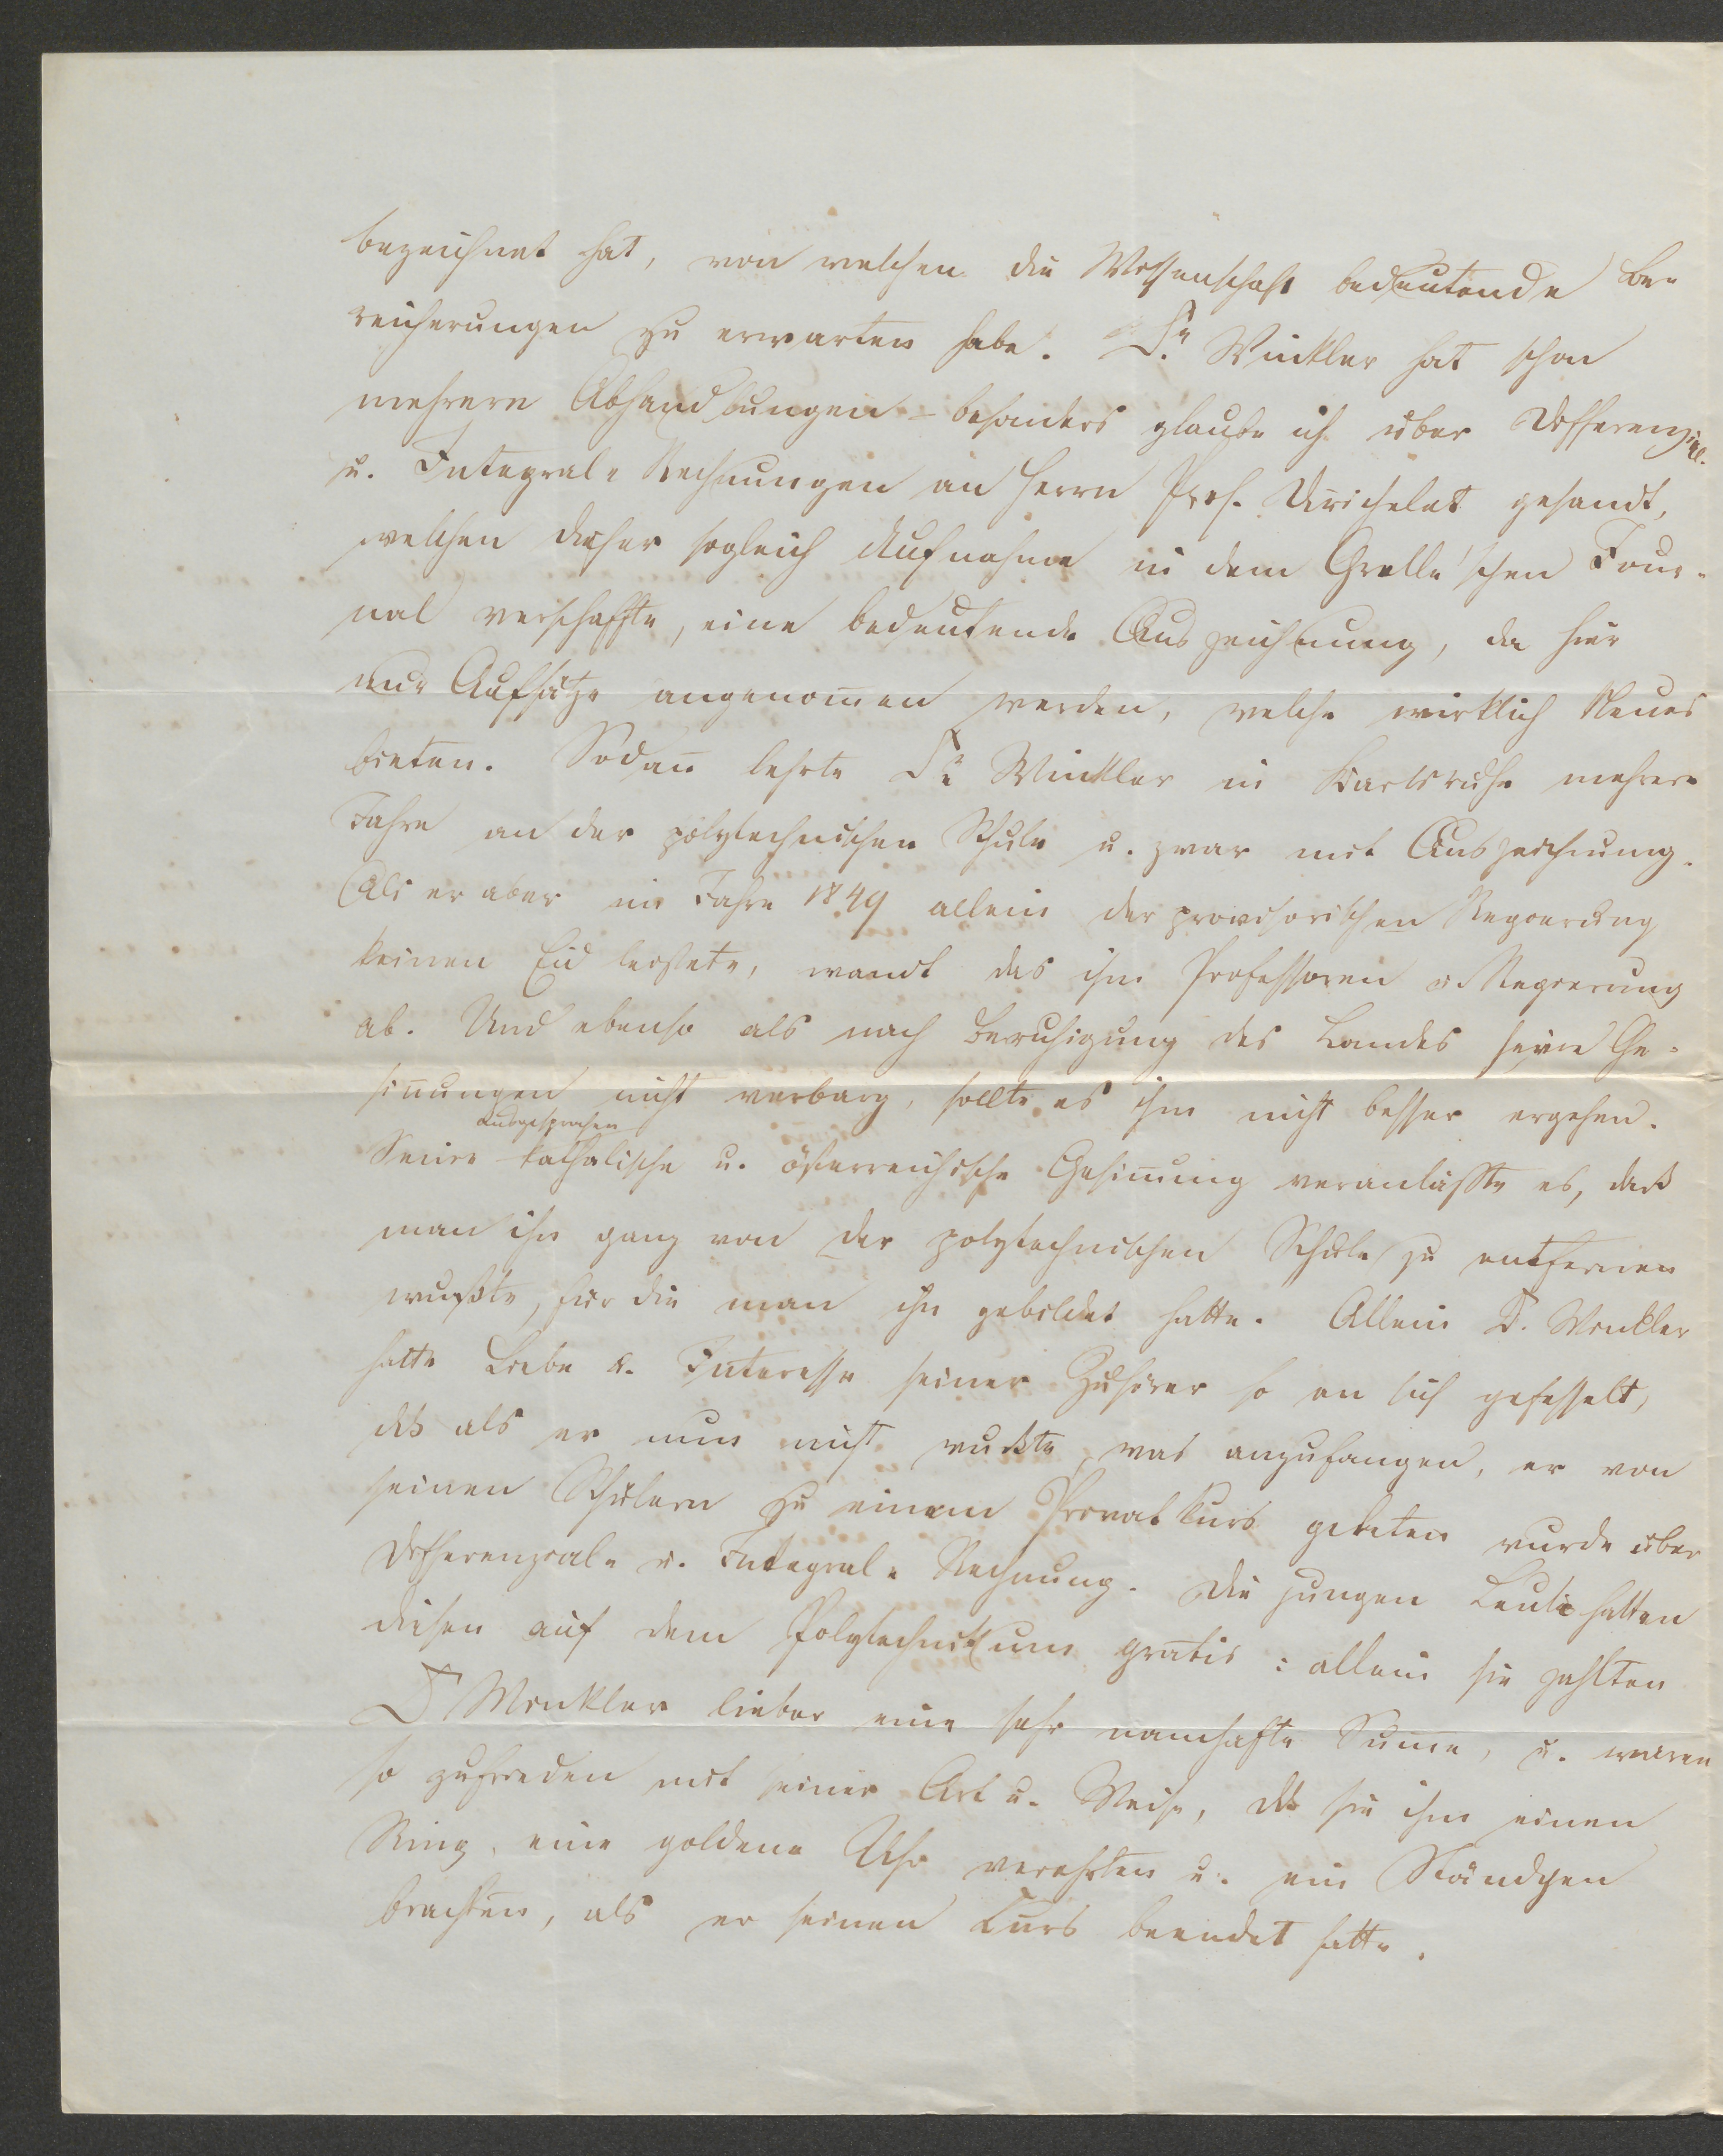 bezeichnet hat, von welchen die Wissenschaft bedeutende Be-
reicherungen zu erwarten habe. Dr. Winkler hat schon
mehrere Abhandlungen – besonders glaube ich über Differenzial-
u. Integral-Rechnungen an Herrn Prof. Dirichelet gesandt,
welchen dieser sogleich Aufnahme in dem Crelle'schen Jour-
nal verschaffte, eine bedeutende Auszeichnung, da hier
nur Aufsätze angenom̄en werden, welche wirklich Neues
bieten. Sodan̄ lehrte Dr Winkler in Karlsruhe mehrere
Jahre an der polytechnischen Schule u. zwar mit Auszeichnung.
Als er aber im Jahre 1849 allein der provisorischen Regierung
keinen Eid leistete, wandt das ihm Professoren u. Regierung
ab. Und ebenso als nach Beruhigung des Landes seine Ge-
sin̄ungen nicht verbarg, sollte es ihm nicht besser ergehen.
ausgesprochen
Seine katholische u. österreichische Gesin̄ung veranlaßte es, daß
man ihn ganz von der polytechnischen Schule zu entfernen
wußte, für die man ihn gebildet hatte. Allein D. Winkler
hatte Liebe u. Interesse seiner Zuhörer so an sich gefesselt,
daß als er nun nicht wußte, was anzufangen, er von
seinen Schülern zu einem Privatkurs gebeten wurde über
Differenzial- u. Integral-Rechnung. Die jungen Leute hatten
diesen auf dem Polytechnikum gratis: allein sie zahlten
D Winkler lieber eine sehr namhafte Sum̄e, u. waren
so zufrieden mit seiner Art u. Weise, daß sie ihm einen
Ring, eine goldene Uhr verehrten u. ein Ständchen
brachten, als er seinen Kurs beendet hatte.